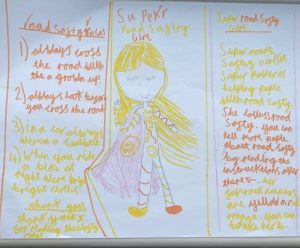 road Safty Rules
1) always cross
the road with
the a grown up.
2) always look before
you cross the road
3) in a car always
wear a seatbelt
4) When you ride
a bike at
night wear bright
bright cloths.
thank you
for reading
rules.
Super
road Safty
Girl
Super road Safty
Girl
Super road
Safty Girl is
Super
helping peple
with road Safty
She loves road
Safty. you can
tell more peple
about road Safty
by reading the
instructions
there. her
favourite colours
are yellow and
orange. you can